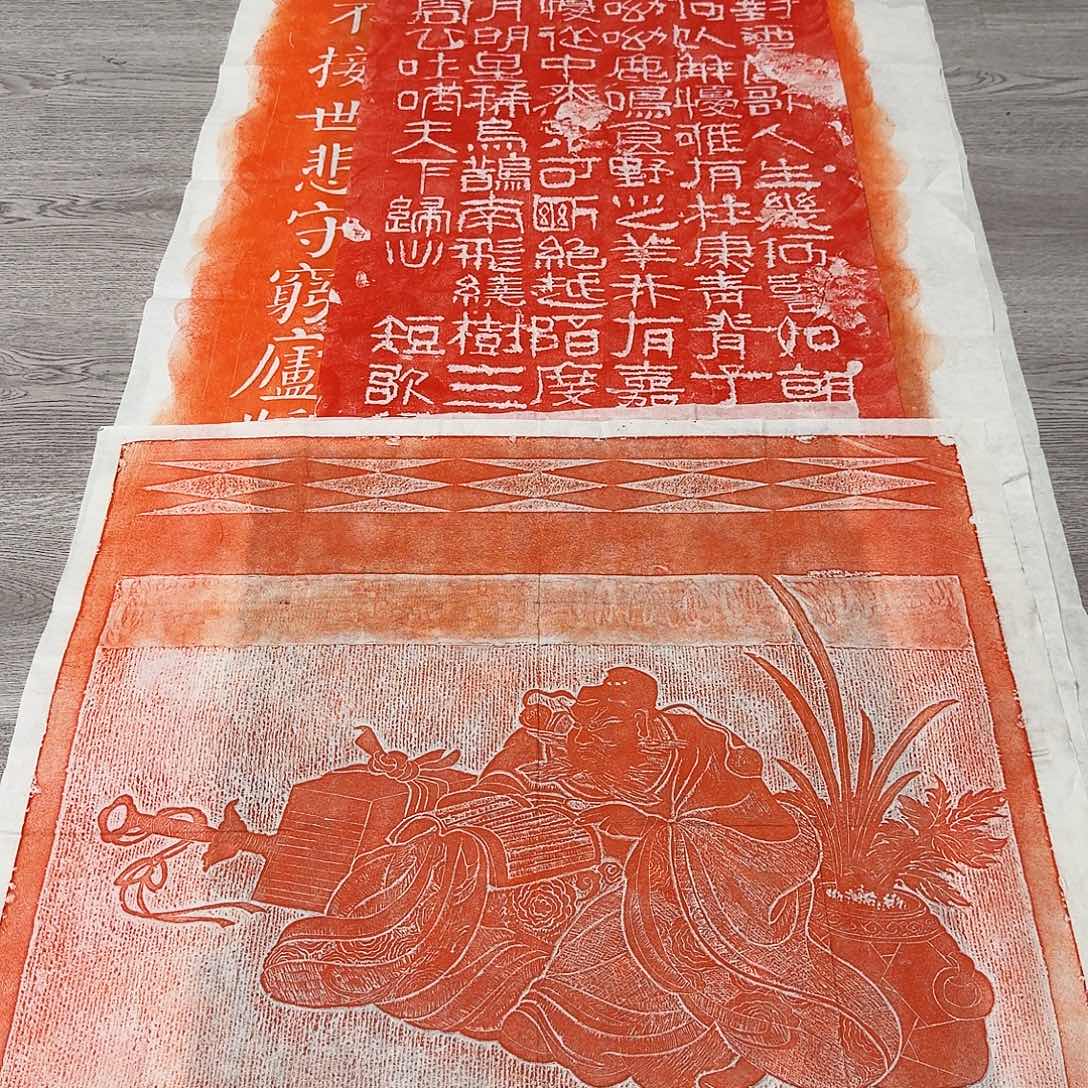 對酒當歌人生幾何譬如朝
何以解懮惟有杜康青青子
呦呦鹿鳴食野之苹我有嘉
懮從中來不可斷絕越陌度
月明星稀烏鵲南飛繞樹三
周公吐哺天下歸心 短歌
不接世悲守窮廬